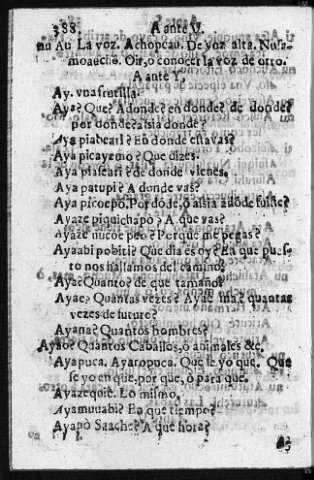 388. A ante V.
nu Au La voz. Achopcau. De voz alta. Nu a-
moaeche. Oir, o conocer la voz de otro.
A ante Y,
Ay. vna frutilla.
Aya? Que? Adonde? en donde? de donde?
por donde? àsia donde?
Aya piabcari? En donde estavas?
Aya picayemo? Que dizes.
Aya piascari? de donde vienes.
Aya patupi? A donde vas?
Aya picoepo. Por dõde, ò àsia adõde fuiste?
Ayaze piquichapò? A que vas?
Ayaze nucoè peo? Porque me pegas?
Ayaabi pobiti? Que dia es oy? Ea que pues-
to nos hallamos del camino?
Ayae? Quanto? de que tamaño?
Ayae? Quantas vezes? Ayae ina? quantas
vezes de future?
Ayana? Quantos hombres?
Ayao? Quantos Caballos, ò animales &c.
Ayapuca. Ayaropuca. Que se yo que. Que
se yo en que, por que, ò para que.
Ayazequiè. Lo mismo.
Ayamuuabi? En que tiempo?
Ayapò Saache? A que hora?